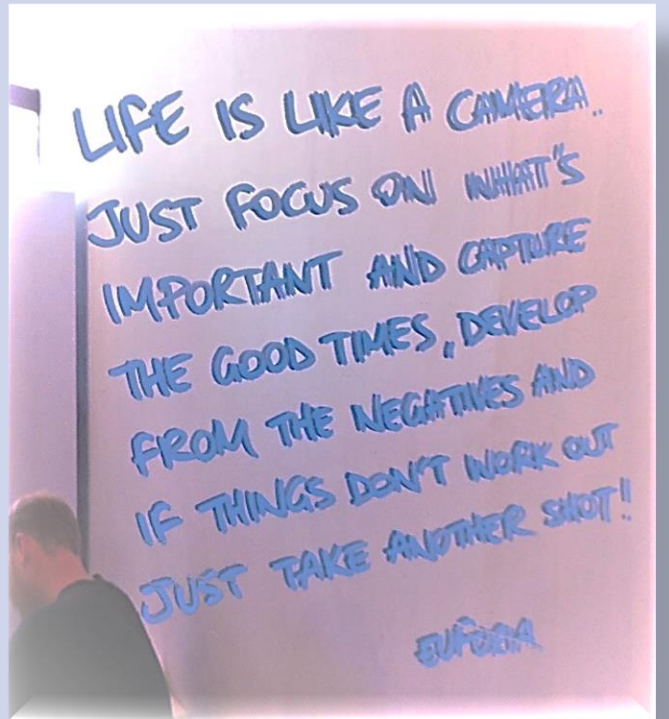 LIFE IS LIKE A CAMERA..
JUST FOCUS ON WHAT'S
IMPORTANT AND CAPTURE
THE GOOD TIMES, DEVELOP
FROM THE NEGATIVES AND
IF THINGS DON'T WORK OUT
JUST TAKE ANOTHER SHOT!!
EUFORIA